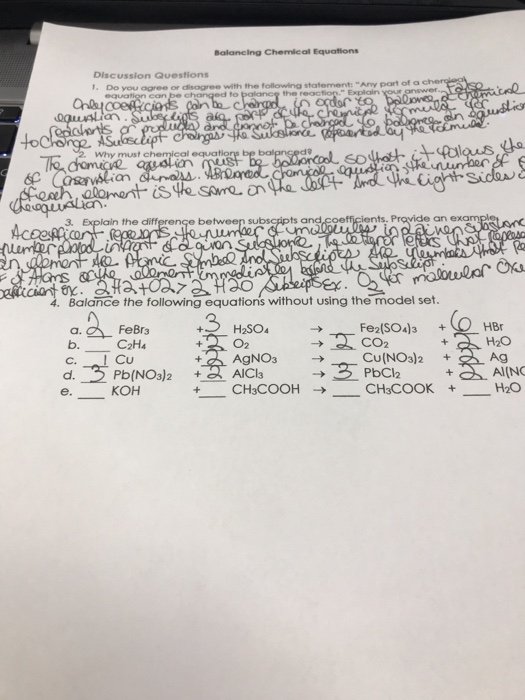 Balancing Chemical Equations
Discussion Questions
1. Do you agree or disagree with the following statement: "Any part of a chemical
equation can be changed to balance the reaction." Explain your answer. False
Only coefficients can be changed in order to balance chemical
equation. Subscripts are part of the chemical formula for
reactants or products and cannot be changed to balance an equation
to change A subscript changes the substance represented by the formula.
2. Why must chemical equations be balanced?
The chemical equation must be balanced so that it follows the
of Conservation of mass. A balanced chemical equation the number of
of each element is the same on the left And the right sides
the equation.
3. Explain the difference between subscripts and coefficients. Provide an example.
A coefficient represents the number of molecules in a given
number placed infront of a given substance, the letter or letters that represe
an element Are Atomic Symbol And Subscripts Are numbers that
# of Atoms of the element immediately before the subscript.
2H2+O2> 2H2O Subscript Ex. O2 for molecular
4. Balance the following equations without using the model set.
a. 2 FeBr3 + 3 H2SO4 → Fe2(SO4)3 + 6 HBr
b. __ C2H4 + 3 O2 → 2 CO2 + 2 H2O
c. 1 Cu + 2 AgNO3 → Cu(NO3)2 + 2 Ag
d. 3 Pb(NO3)2 + 2 AlCl3 → 3 PbCl2 + 2 Al(NO
e. __ KOH + __ CH3COOH → __ CH3COOK + __ H2O